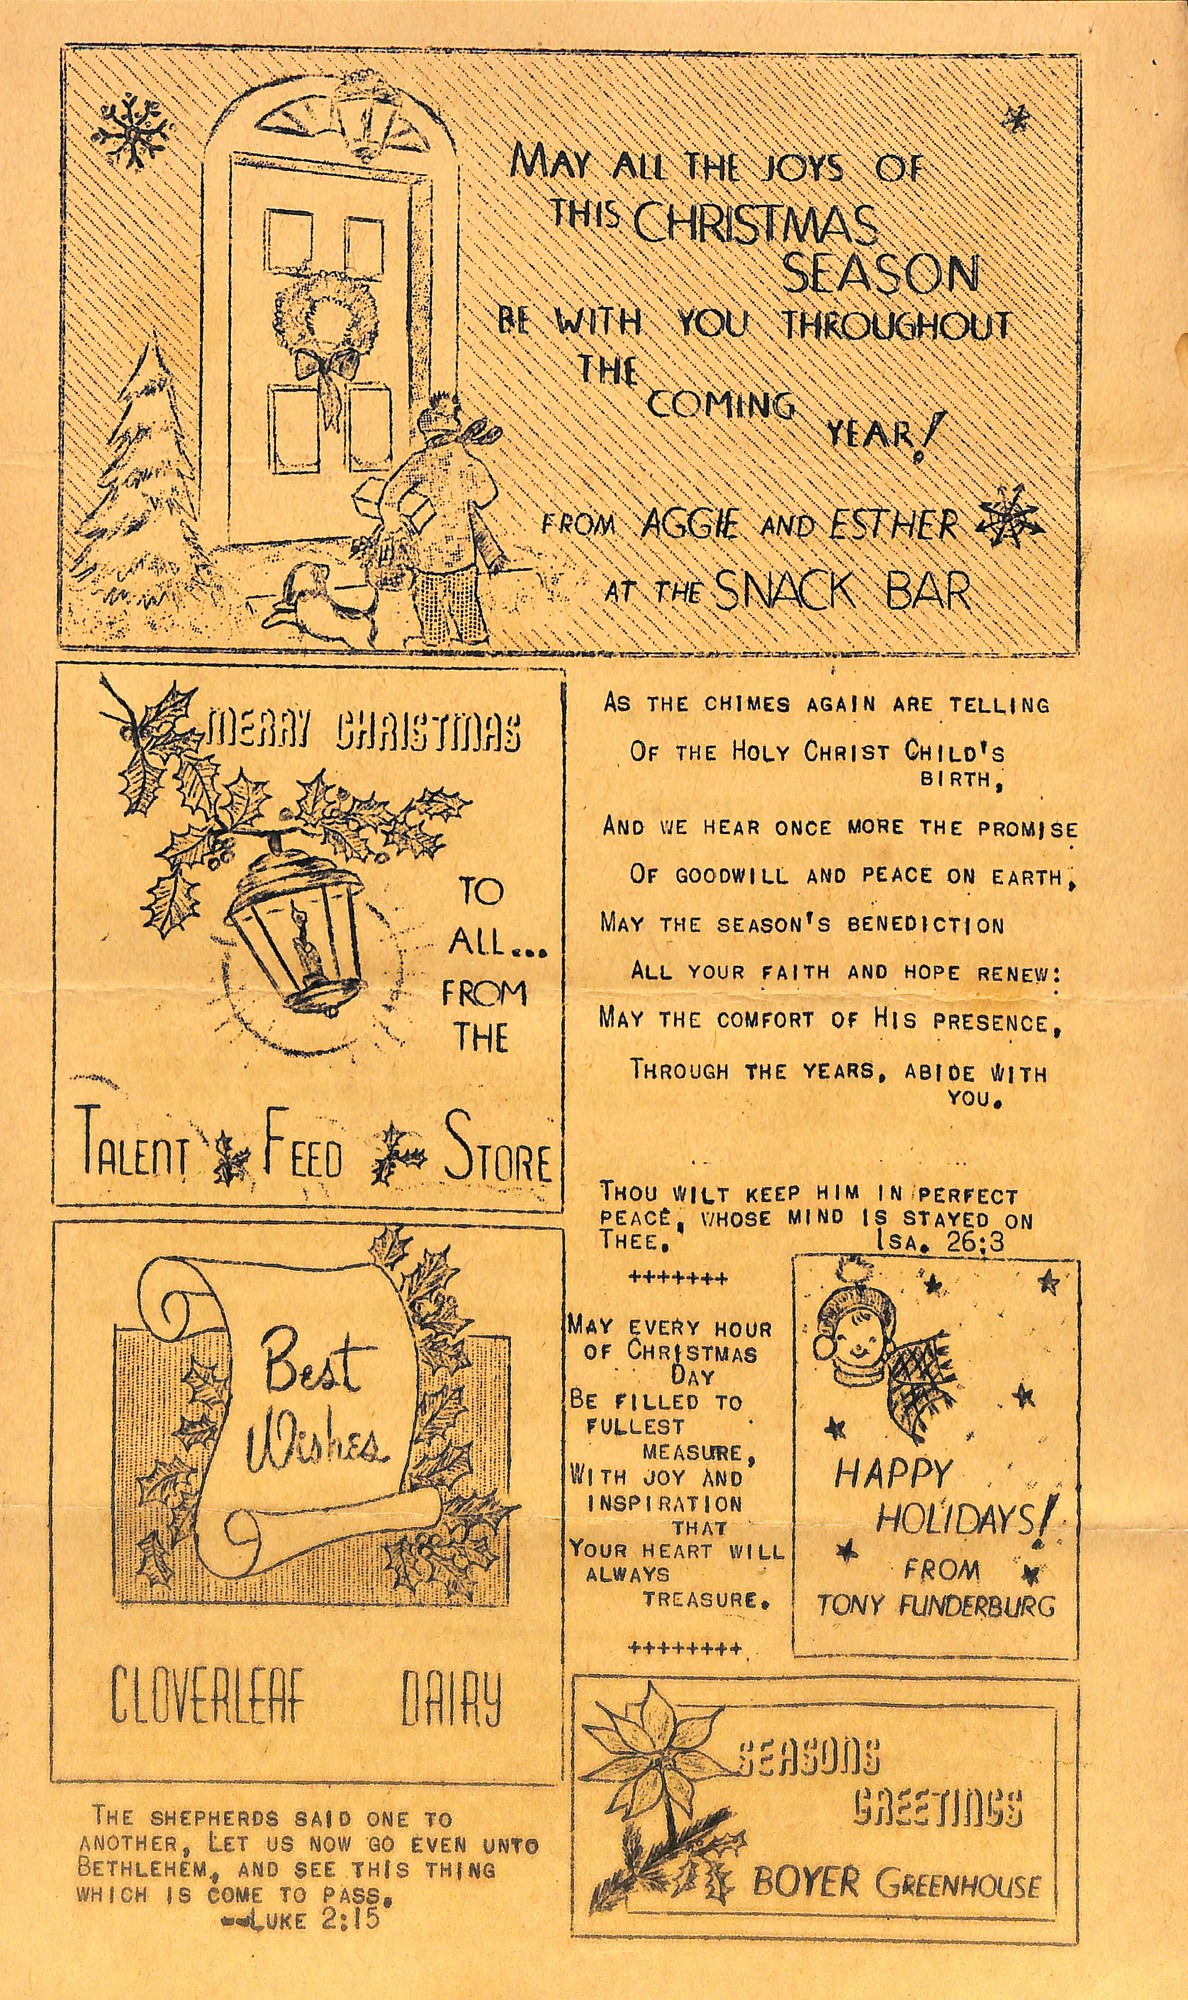 MAY ALL THE JOYS OF
THIS CHRISTMAS
SEASON
BE WITH YOU THROUGHOUT
THE
COMING
YEAR!
FROM AGGIE AND ESTHER
AT THE SNACK BAR
MERRY CHRISTMAS
TO
ALL...
FROM
THE
TALENT FEED STORE
AS THE CHIMES AGAIN ARE TELLING
OF THE HOLY CHRIST CHILD'S
BIRTH,
AND WE HEAR ONCE MORE THE PROMISE
OF GOODWILL AND PEACE ON EARTH,
MAY THE SEASON'S BENEDICTION
ALL YOUR FAITH AND HOPE RENEW:
MAY THE COMFORT OF HIS PRESENCE,
THROUGH THE YEARS, ABIDE WITH
YOU.
THOU WILT KEEP HIM IN PERFECT
PEACE, WHOSE MIND IS STAYED ON
THEE. ISA. 26:3
+++++++
MAY EVERY HOUR
OF CHRISTMAS
DAY
BE FILLED TO
FULLEST
MEASURE,
WITH JOY AND
INSPIRATION
THAT
YOUR HEART WILL
ALWAYS
TREASURE.
++++++++
HAPPY
HOLIDAYS!
FROM
TONY FUNDERBURG
Best
Wishes
CLOVERLEAF DAIRY
SEASONS
GREETINGS
BOYER GREENHOUSE
THE SHEPHERDS SAID ONE TO
ANOTHER, LET US NOW GO EVEN UNTO
BETHLEHEM, AND SEE THIS THING
WHICH IS COME TO PASS.
--LUKE 2:15